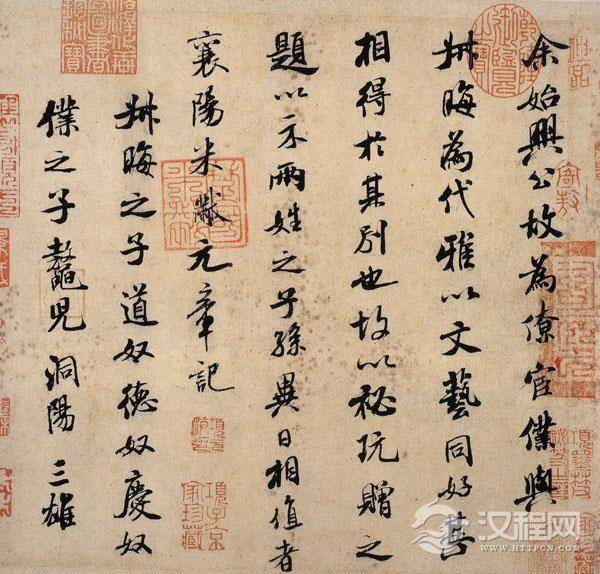 余始興公故為僚宦僕與
叔晦為代雅以文藝同好甚
相得於其別也故以秘玩贈之
題以示兩姓之子孫異日相值者
襄陽米黻元章記
叔晦之子道奴德奴慶奴
僕之子鼇兒洞陽三雄
項子京家珍藏
汉程网
WWW.HTTPCN.COM